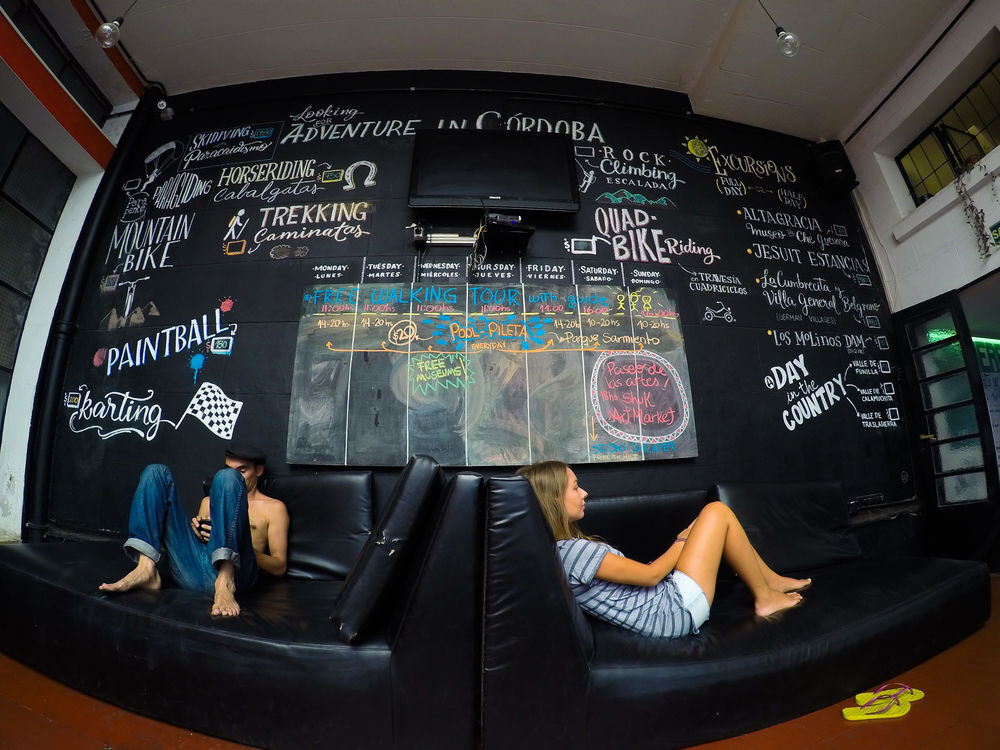 Looking
FOR
ADVENTURE IN CÓRDOBA
SKIDIVING
Paracaidismo
PARAGLIDING
Parapente
HORSERIDING
Cabalgatas
TREKKING
Caminatas
MOUNTAIN
BIKE
PAINTBALL
karting
ROCK
Climbing
ESCALADA
QUAD-
BIKE Riding
EN TRAVESIA
CUADRICICLOS
PHILIPS
EXCURSIONS
FULL
DAY
HALF
DAY
• ALTAGRACIA
Museo del Che Guevara
• JESUIT ESTANCIAS
• La Cumbrecita y
Villa General Belgrano
(GERMAN VILLAGES)
• LOS MOLINOS DAM
A DAY
in the
COUNTRY
VALLE DE
PUNILLA
VALLE DE
CALAMUCHITA
VALLE DE
TRASLASIERRA
·MONDAY· ·TUESDAY· WEDNESDAY THURSDAY FRIDAY SATURDAY· ·SUNDAY·
LUNES· ·MARTES· MIERCOLES ·JUEVES· VIERNES· SABADO· DOMINGO·
*FREE WALKING TOUR with guide
11:00hs 11:00hs 11:00hs 11:00hs 11:00 16:00
14-20hs 14-20hs $20 POOL-PILETA 14-20h 10-20hs 10-20hs
EVERYDAY
Parque Sarmiento
FREE
MUSEUMS
Paseo de
las artes/
Art Market